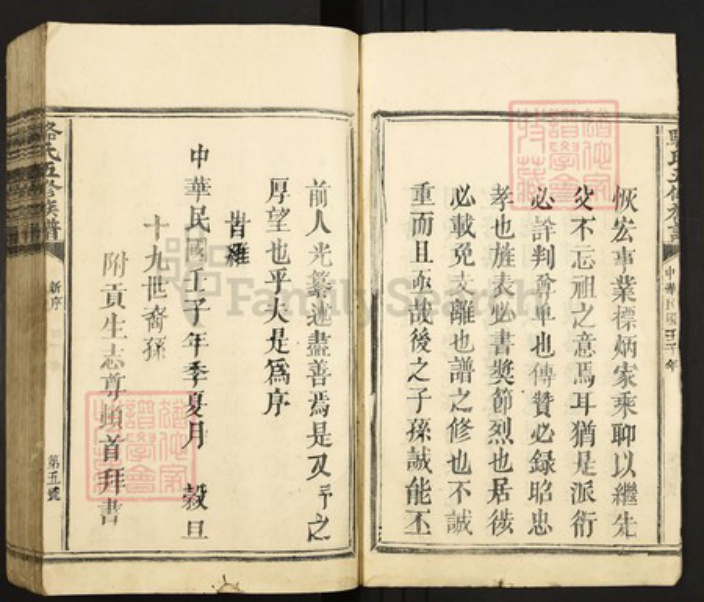 恢宏事業標炳家乘聊以繼先
父不忘祖之意焉耳猶是派衍
必詳判尊卑也傳贊必録昭忠
孝也旌表必書獎節烈也居徙
必載免支離也譜之修也不誠
重而且亟哉後之子孫誠能丕
中華民國壬子年
前人光纂述盡善焉是又予之
厚望也乎夫是爲序
旹維
中華民國壬子年季夏月 穀旦
十九世裔孫
附貢生志尊頓首拜書
駱氏五修族譜
新序
第五號
FamilySearch